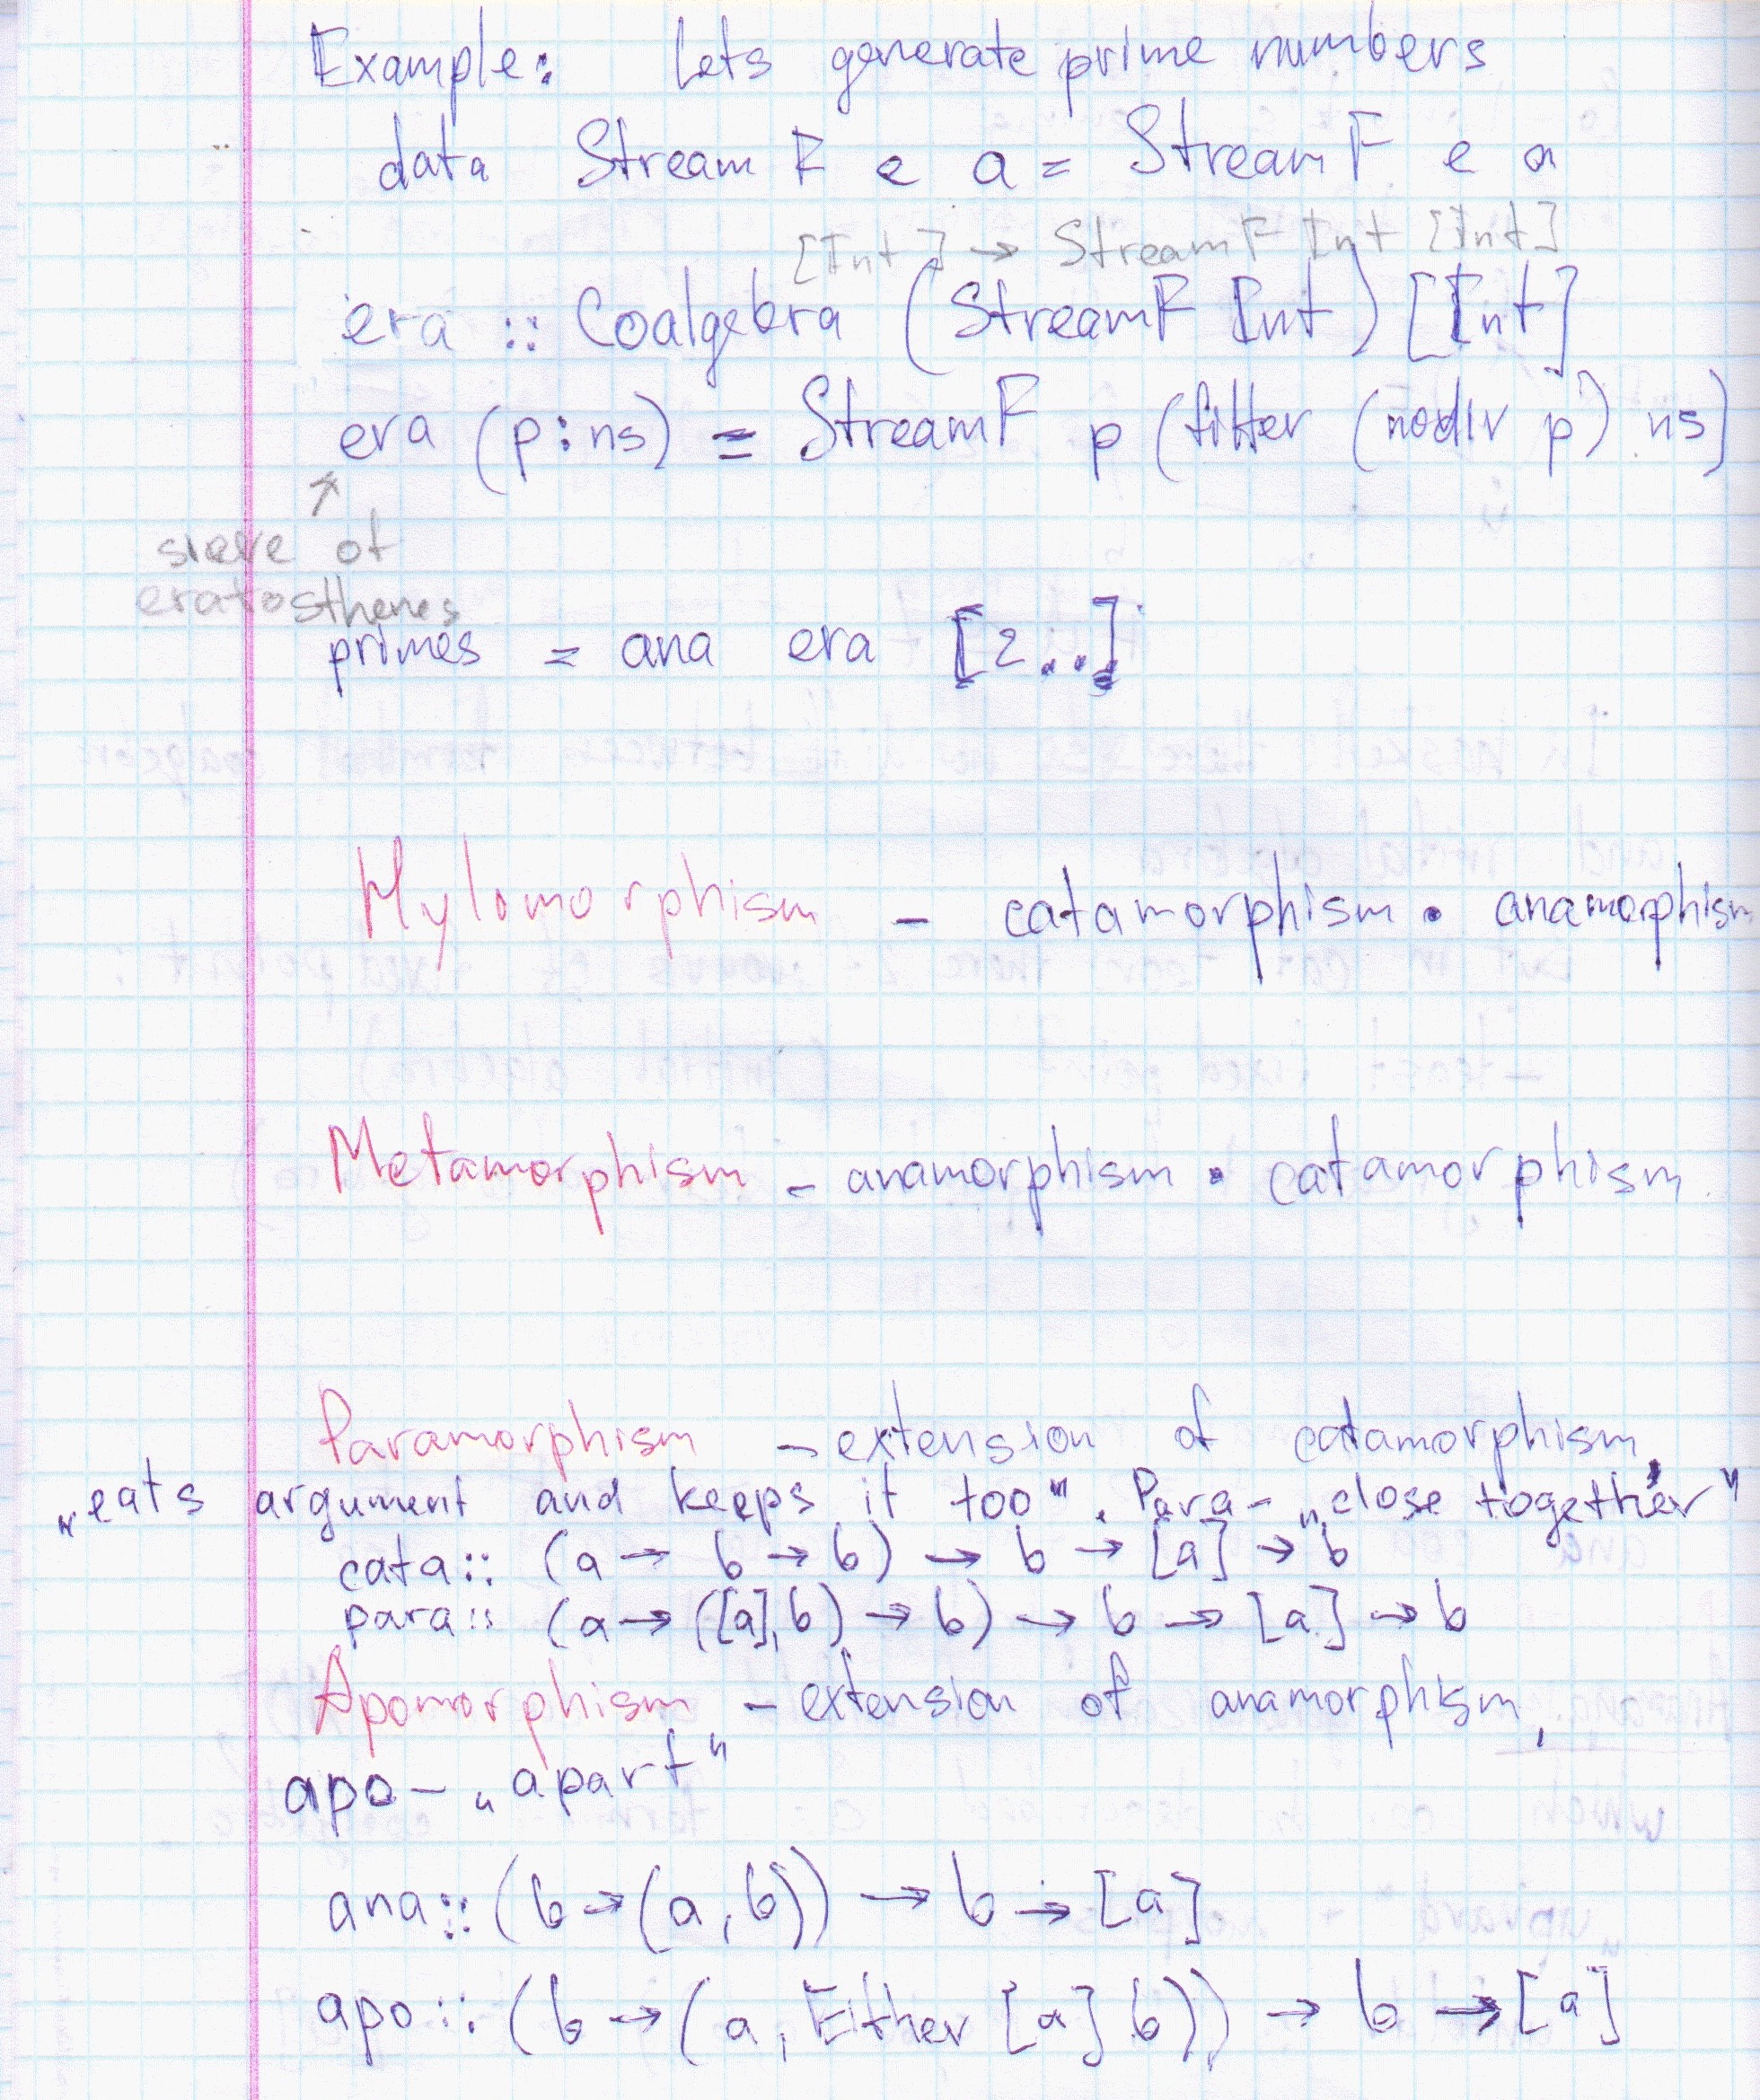 Example: Lets generate prime numbers
data StreamF e a = StreamF e a
[Int] → StreamF Int [Int]
era :: Coalgebra (StreamF Int) [Int]
era (p:ns) = StreamF p (filter (nodiv p) ns)
↗
sieve of
eratosthenes
primes = ana era [2..]
Hylomorphism - catamorphism • anamorphism
Metamorphism - anamorphism • catamorphism
Paramorphism - extension of catamorphism,
„eats argument and keeps it too". Para- „close together"
cata:: (a → b → b) → b → [a] → b
para:: (a → ([a],b) → b) → b → [a] → b
Apomorphism - extension of anamorphism,
apo- „apart"
ana:: (b → (a,b)) → b → [a]
apo:: (b → (a, Either [a] b)) → b → [a]